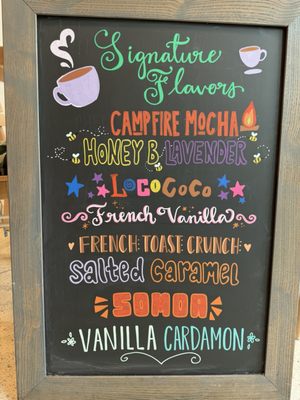 Signature
Flavors
CAMPFIRE MOCHA
HONEY B LAVENDER
LOCOCOCO
French Vanilla
FRENCH TOAST CRUNCH
Salted CARAMEL
SOMOA
VANILLA CARDAMON